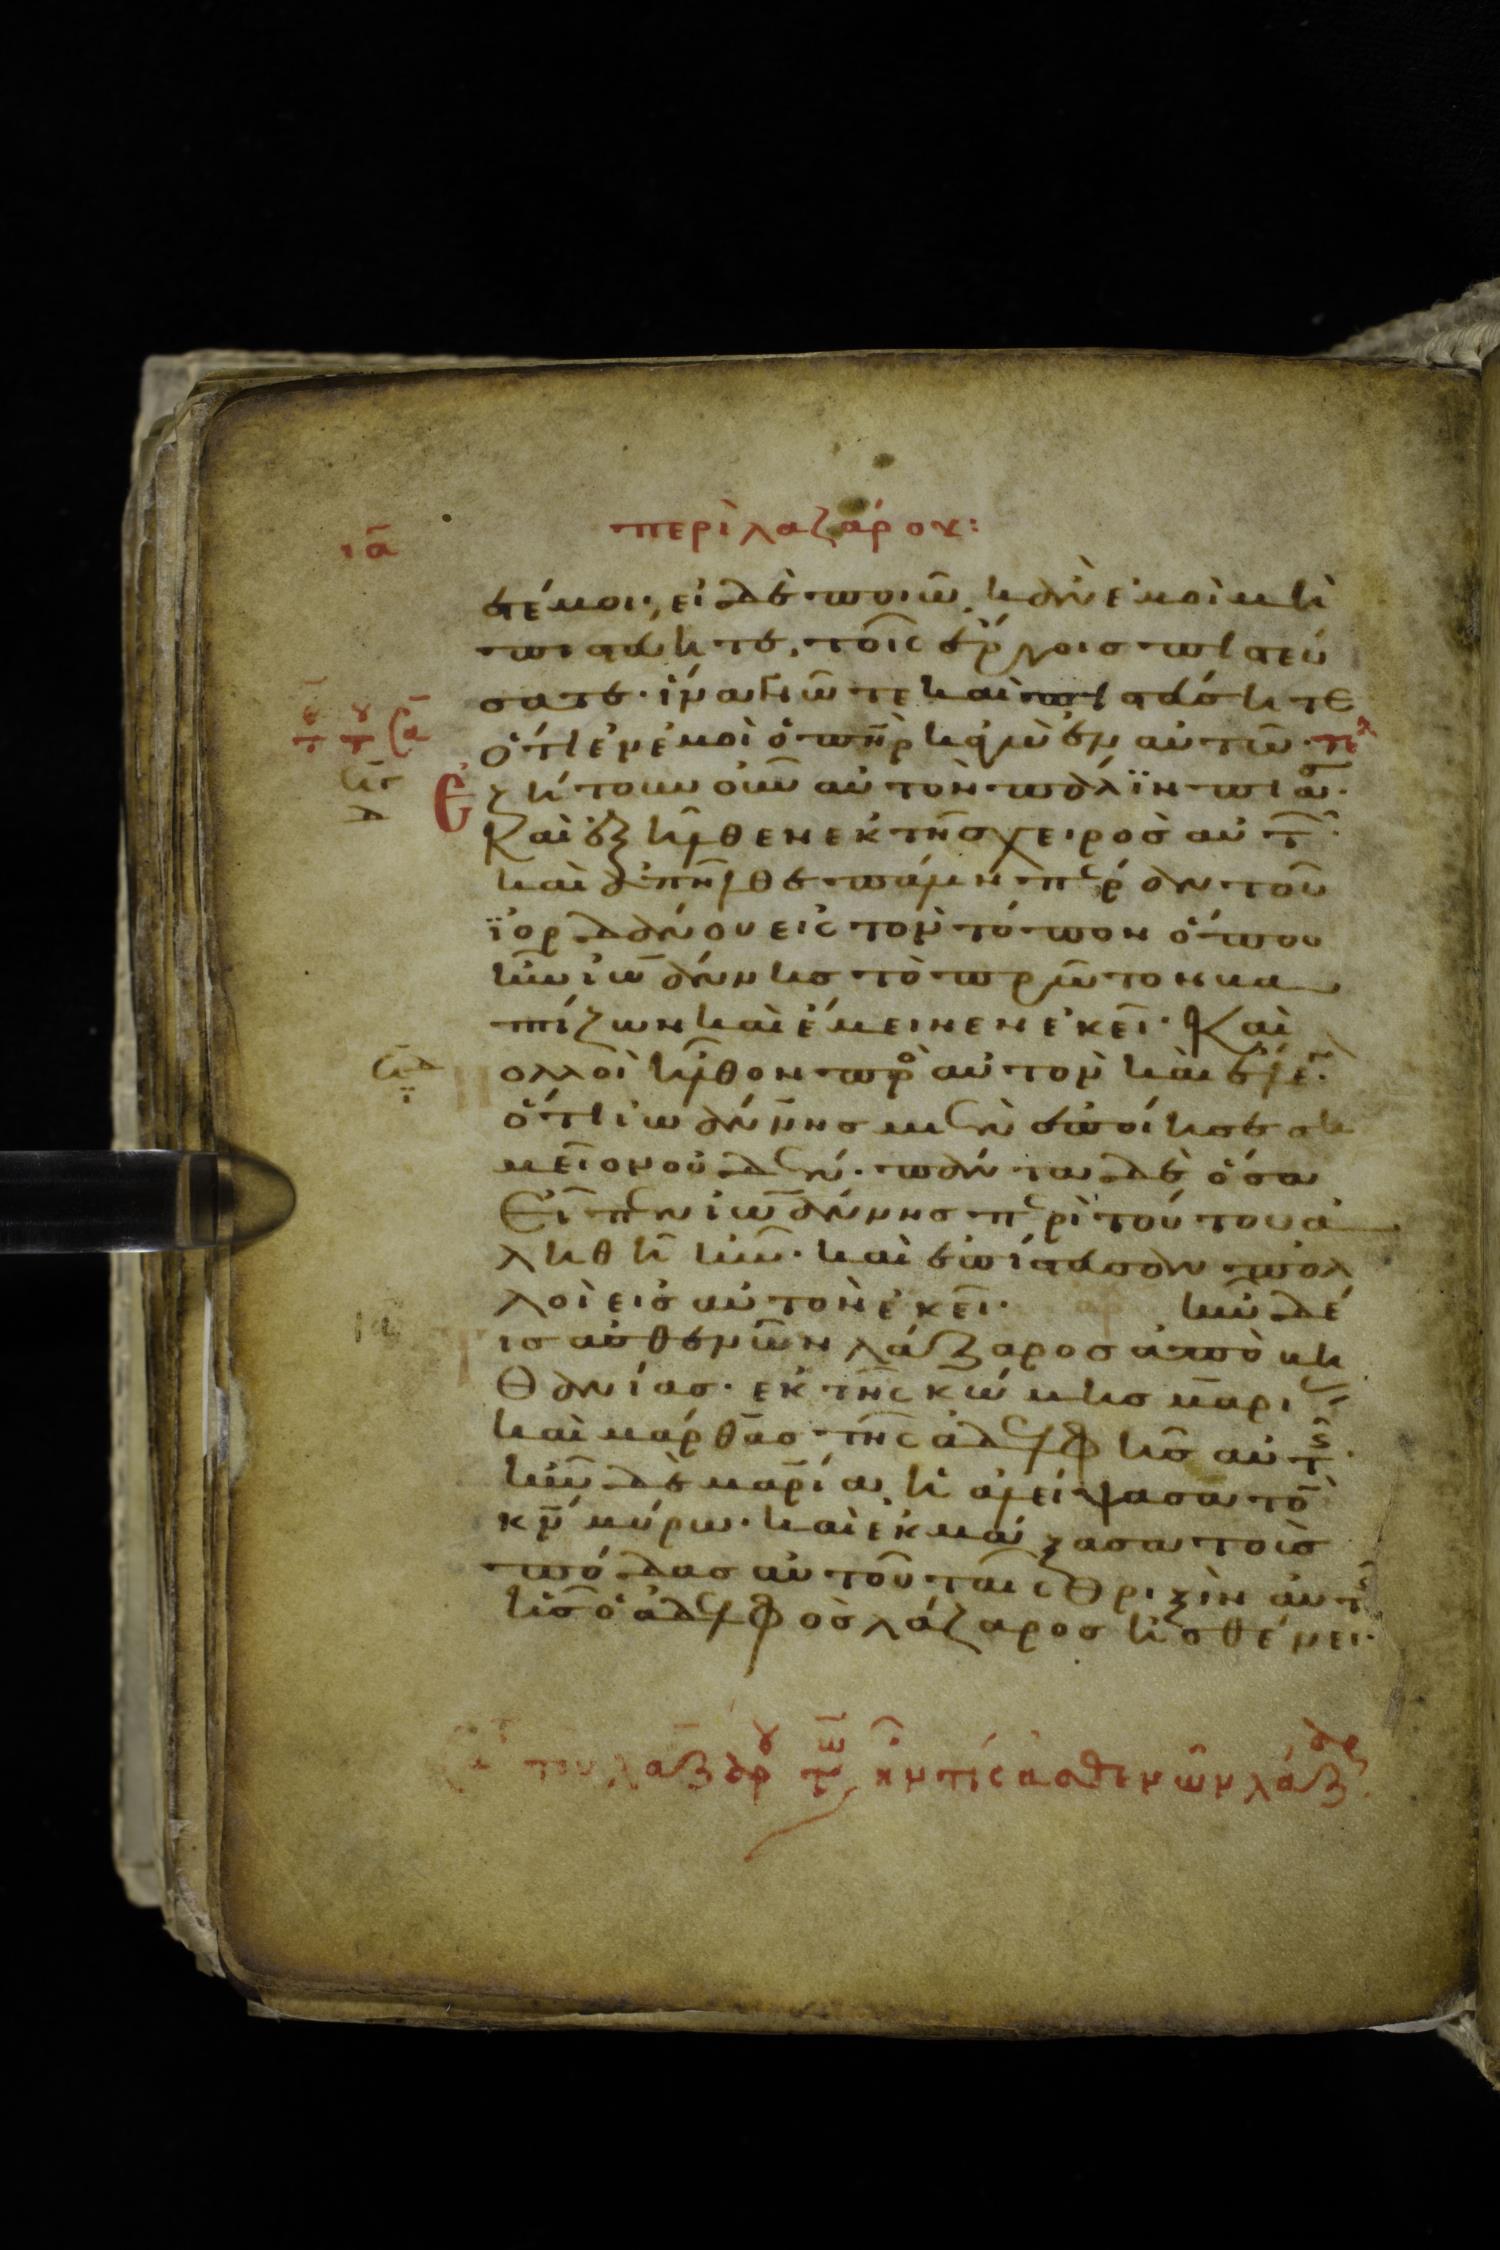 ια περὶ λαζάρου:
τέ μοι· εἰ δὲ ποιῶ, κἂν ἐμοὶ μὴ
πιστεύητε, τοῖς ἔργοις πιστεύ
σατε· ἵνα γνῶτε καὶ πιστεύσητε
ὅτι ἐν ἐμοὶ ὁ πηρ κἀγὼ ἐν αὐτῶ· τε
Ἐζήτουν οὖν αὐτὸν πάλϊν πιά
Καὶ ἐξῆλθεν ἐκ τῆς χειρὸς αὐτ
καὶ ἀπῆλθε πάλιν περάν τοῦ
ϊορδάνου εἰς τὸν τόπον ὅπου
ἦν ἰωάννης τὸ πρῶτον βα
πτίζων καὶ ἔμεινεν ἐκεῖ· Καὶ
πολλοὶ ἦλθον προ αὐτὸν καὶ ἔλε
ὅτι ἰωάννης μὲν ἐποίησε ση
μεῖον οὐδέν· πάντα δὲ ὅσα
Εἶπεν ἰωάννης περὶ τούτου ἀ
ληθῆ ἦν· καὶ ἐπίστευσαν πολ
λοὶ εἰς αὐτὸν ἐκεῖ· ἦν δέ
τις ἀσθενῶν λάζαρος ἀπὸ βη
Θανίας· ἐκ τῆς κώμης μαρι
καὶ μάρθας τῆς ἀδελφῆς αὐτ
ἦν δὲ μαρία ἡ ἀλείψασα τὸ
κν μύρω· καὶ ἐκμάξασα τοὺς
πόδας αὐτοῦ ταῖς θριξὶν αὐτ
ἧς ὁ ἀδελφὸς λάζαρος ἠσθένει·
του λαζάρου τω κ ην τίς ἀσθενῶν λάζαρ